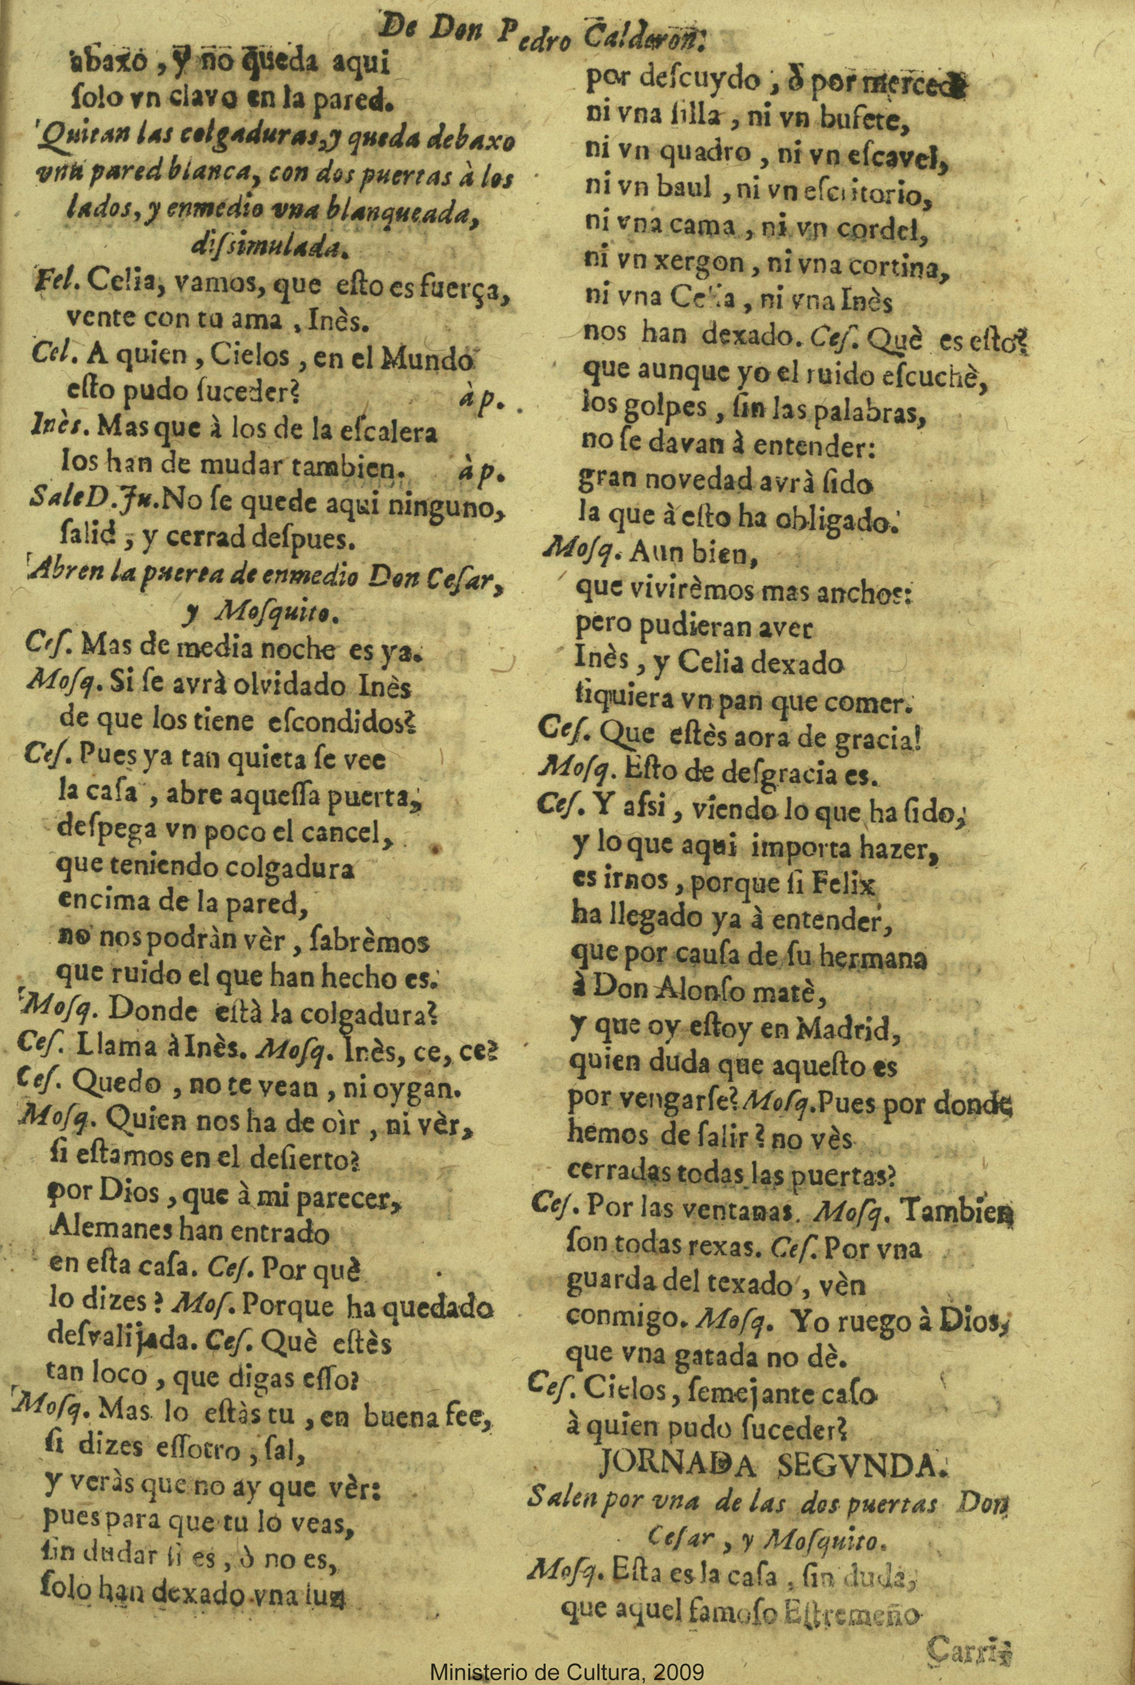 De Don Pedro Calderon.
abaxo, y no queda aqui
solo vn clavo en la pared.
Quitan las colgaduras, y queda debaxo
vna pared blanca, con dos puertas à los
lados, y enmedio vna blanqueada,
dissimulada.
Fel. Celia, vamos, que esto es fuerça,
vente con tu ama, Inès.
Cel. A quien, Cielos, en el Mundo
esto pudo suceder? àp.
Inès. Mas que à los de la escalera
los han de mudar tambien. àp.
Sale D. Ju. No se quede aqui ninguno,
salid, y cerrad despues.
Abren la puerta de enmedio Don Cesar,
y Mosquito.
Ces. Mas de media noche es ya.
Mosq. Si se avrà olvidado Inès
de que los tiene escondidos?
Ces. Pues ya tan quieta se vee
la casa, abre aquessa puerta,
despega vn poco el cancel,
que teniendo colgadura
encima de la pared,
no nos podràn vèr, sabrèmos
que ruido el que han hecho es.
Mosq. Donde està la colgadura?
Ces. Llama à Inès. Mosq. Inès, ce, ce?
Ces. Quedo, no te vean, ni oygan.
Mosq. Quien nos ha de oìr, ni vèr,
si estamos en el desierto?
por Dios, que à mi parecer,
Alemanes han entrado
en esta casa. Ces. Por què
lo dizes? Mos. Porque ha quedado
desvalijada. Ces. Què estès
tan loco, que digas esso?
Mosq. Mas lo estàs tu, en buena fee,
si dizes essotro, sal,
y veràs que no ay que vèr:
pues para que tu lo veas,
sin dudar si es, ò no es,
solo han dexado vna luz
por descuydo, ò por merced
ni vna silla, ni vn bufete,
ni vn quadro, ni vn escavel,
ni vn baul, ni vn escritorio,
ni vna cama, ni vn cordel,
ni vn xergon, ni vna cortina,
ni vna Celia, ni vna Inès
nos han dexado. Ces. Què es esto?
que aunque yo el ruido escuchè,
los golpes, sin las palabras,
no se davan à entender:
gran novedad avrà sido
la que à esto ha obligado.
Mosq. Aun bien,
que vivirèmos mas anchos:
pero pudieran aver
Inès, y Celia dexado
siquiera vn pan que comer.
Ces. Que estès aora de gracia!
Mosq. Esto de desgracia es.
Ces. Y assi, viendo lo que ha sido,
y lo que aqui importa hazer,
es irnos, porque si Felix
ha llegado ya à entender,
que por causa de su hermana
à Don Alonso matè,
y que oy estoy en Madrid,
quien duda que aquesto es
por vengarse? Mosq. Pues por donde
hemos de salir? no vès
cerradas todas las puertas?
Ces. Por las ventanas. Mosq. Tambien
son todas rexas. Ces. Por vna
guarda del texado, vèn
conmigo. Mosq. Yo ruego à Dios,
que vna gatada no dè.
Ces. Cielos, semejante caso
à quien pudo suceder?
JORNADA SEGVNDA.
Salen por vna de las dos puertas Don
Cesar, y Mosquito.
Mosq. Esta es la casa, sin duda,
que aquel famoso Estremeño
Carri
Ministerio de Cultura, 2009